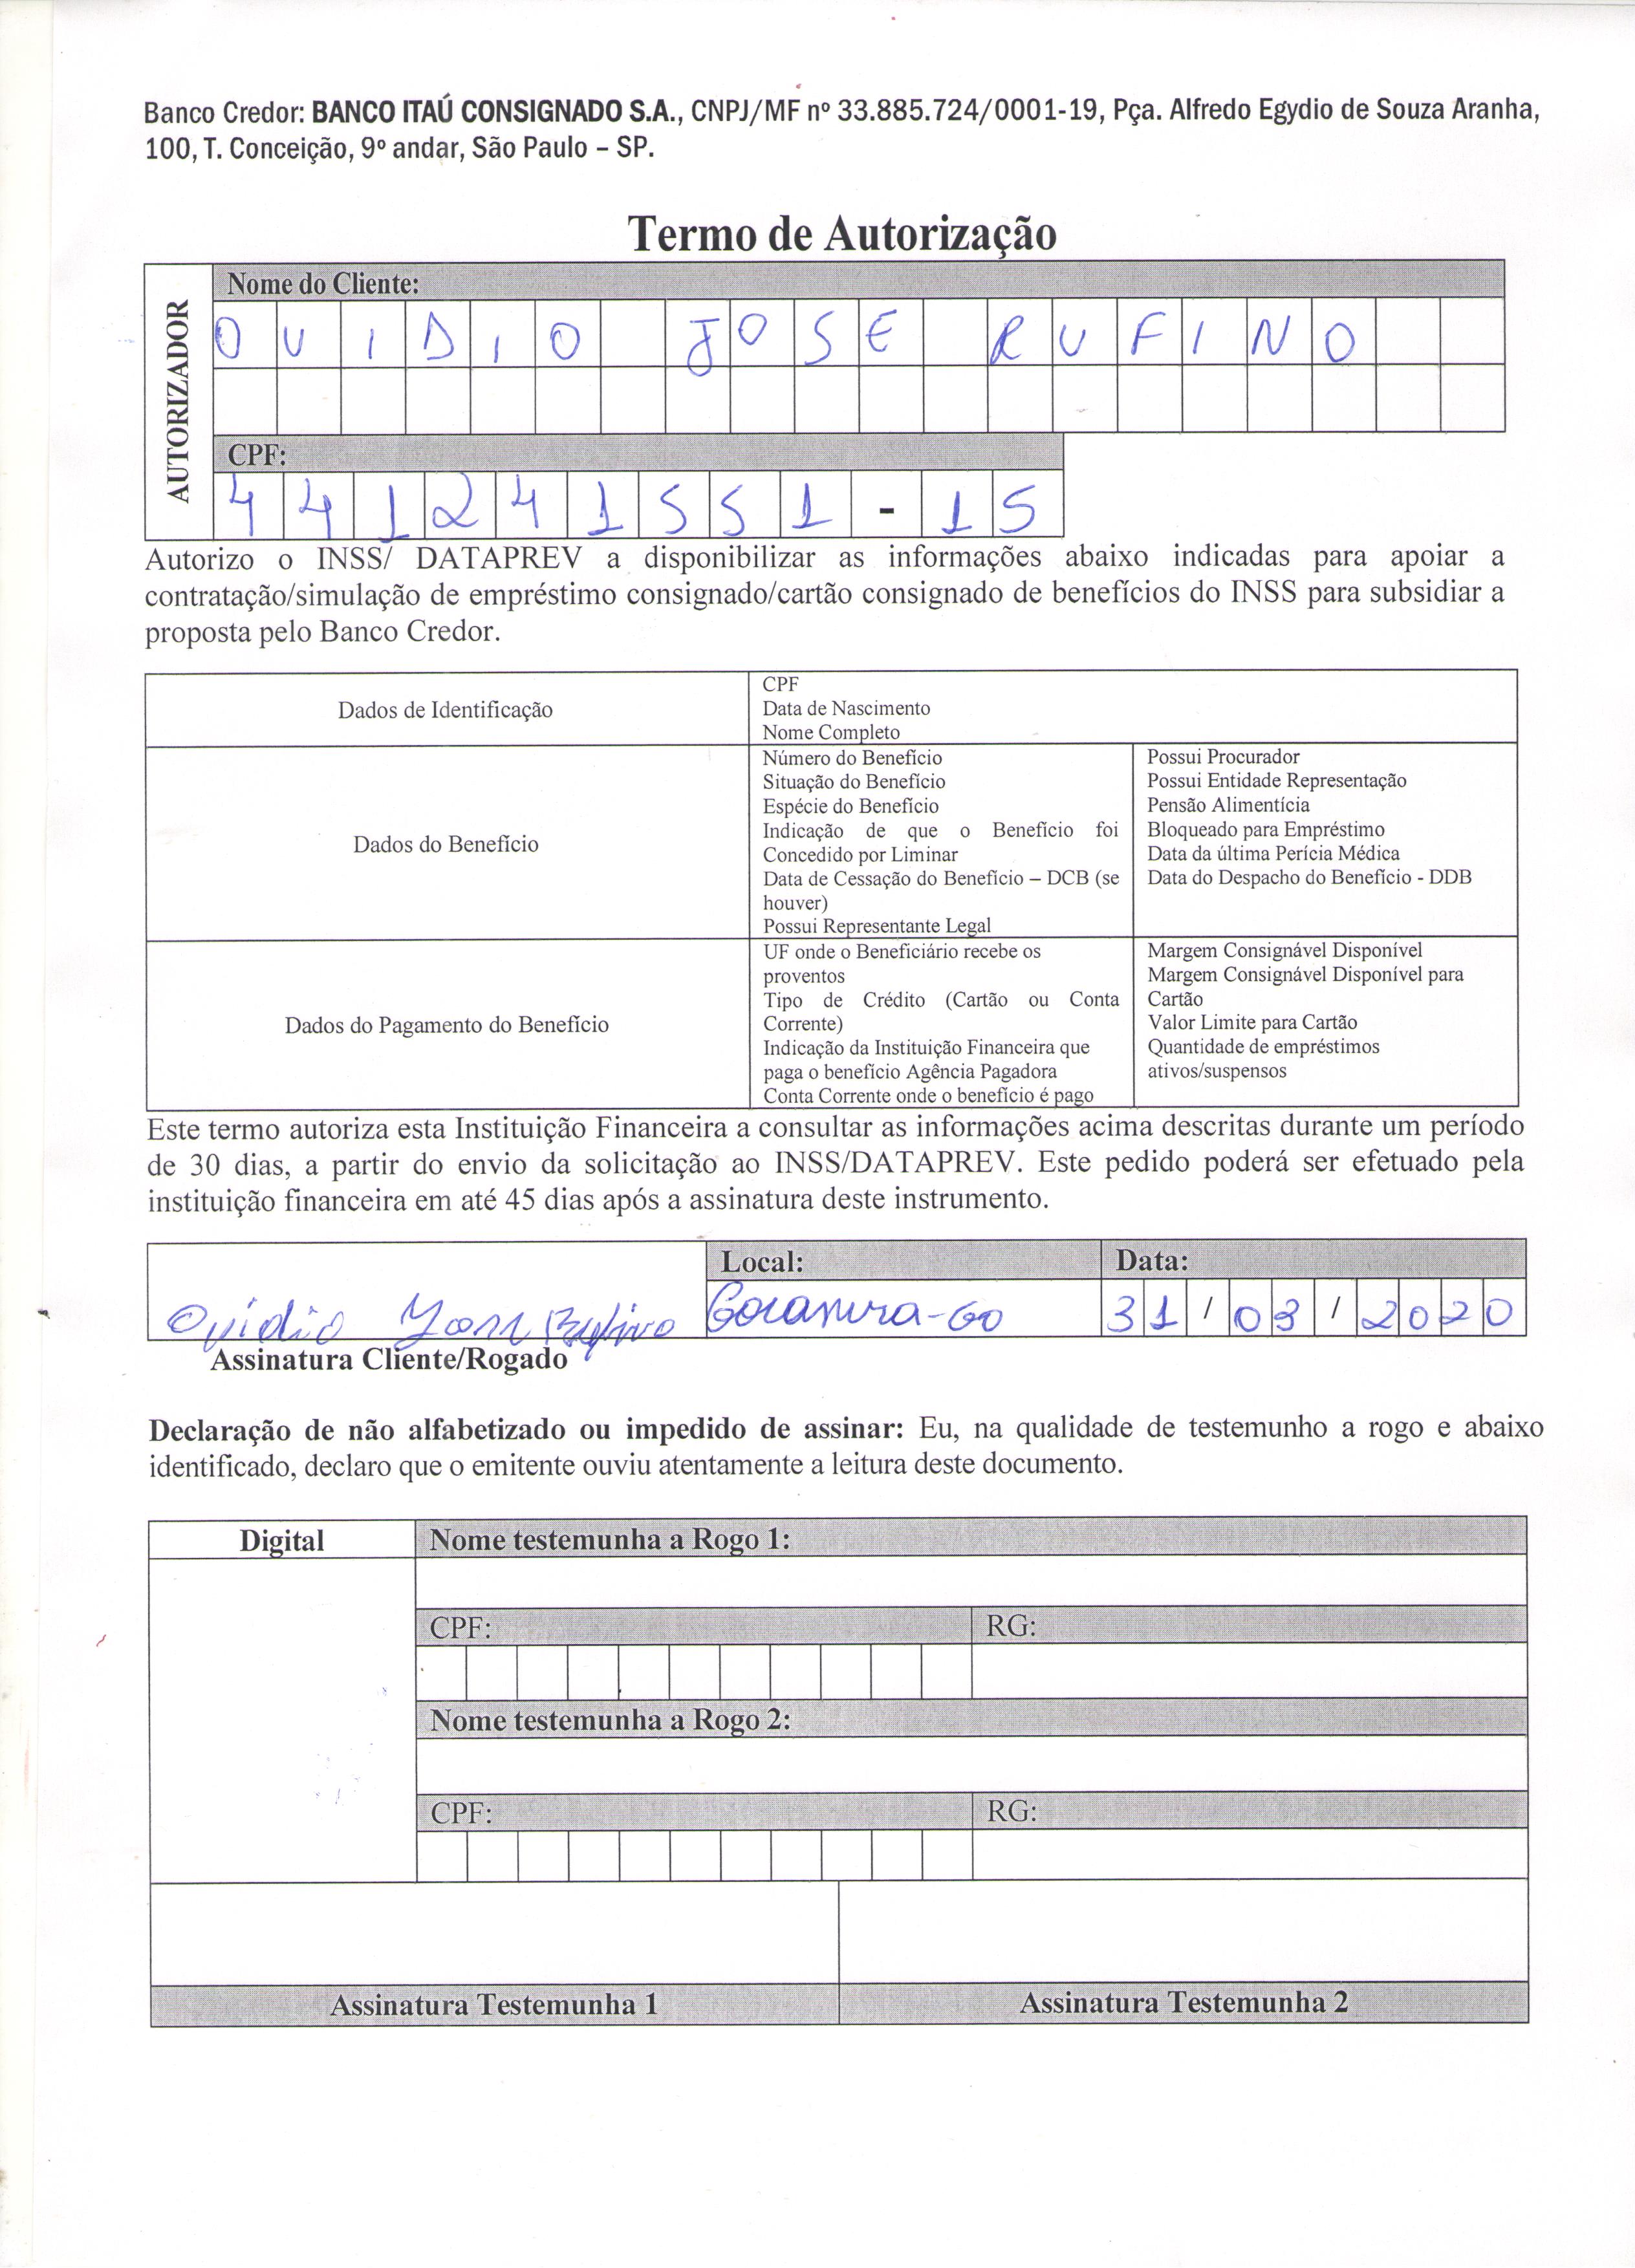 Banco Credor: BANCO ITAÚ CONSIGNADO S.A., CNPJ/MF nº 33.885.724/0001-19, Pça. Alfredo Egydio de Souza Aranha,
100, T. Conceição, 9º andar, São Paulo – SP.
Termo de Autorização
AUTORIZADOR
Nome do Cliente:
OVIDIO JOSE RUFINO
CPF:
441241551-15
Autorizo o INSS/ DATAPREV a disponibilizar as informações abaixo indicadas para apoiar a
contratação/simulação de empréstimo consignado/cartão consignado de benefícios do INSS para subsidiar a
proposta pelo Banco Credor.
Dados de Identificação
CPF
Data de Nascimento
Nome Completo
Dados do Benefício
Número do Benefício
Situação do Benefício
Espécie do Benefício
Indicação de que o Benefício foi
Concedido por Liminar
Data de Cessação do Benefício – DCB (se
houver)
Possui Representante Legal
Possui Procurador
Possui Entidade Representação
Pensão Alimentícia
Bloqueado para Empréstimo
Data da última Perícia Médica
Data do Despacho do Benefício - DDB
Dados do Pagamento do Benefício
UF onde o Beneficiário recebe os
proventos
Tipo de Crédito (Cartão ou Conta
Corrente)
Indicação da Instituição Financeira que
paga o benefício Agência Pagadora
Conta Corrente onde o benefício é pago
Margem Consignável Disponível
Margem Consignável Disponível para
Cartão
Valor Limite para Cartão
Quantidade de empréstimos
ativos/suspensos
Este termo autoriza esta Instituição Financeira a consultar as informações acima descritas durante um período
de 30 dias, a partir do envio da solicitação ao INSS/DATAPREV. Este pedido poderá ser efetuado pela
instituição financeira em até 45 dias após a assinatura deste instrumento.
Local:
Data:
Ovidio
Goianira-GO
31/03/2020
Assinatura Cliente/Rogado
Declaração de não alfabetizado ou impedido de assinar: Eu, na qualidade de testemunho a rogo e abaixo
identificado, declaro que o emitente ouviu atentamente a leitura deste documento.
Digital
Nome testemunha a Rogo 1:
CPF:
RG:
Nome testemunha a Rogo 2:
CPF:
RG:
Assinatura Testemunha 1
Assinatura Testemunha 2